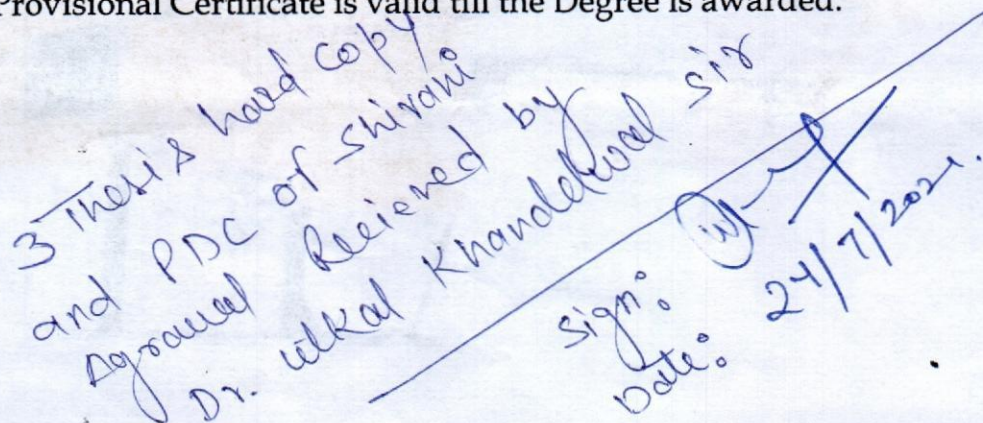 Provisional Certificate is valid till the Degree is awarded.
3 Thesis hard copy
and PDC of Shivani
Agrawal Recieved by
Dr. Utkal Khandelwal sir
Sign:
Date: 24/7/2021.